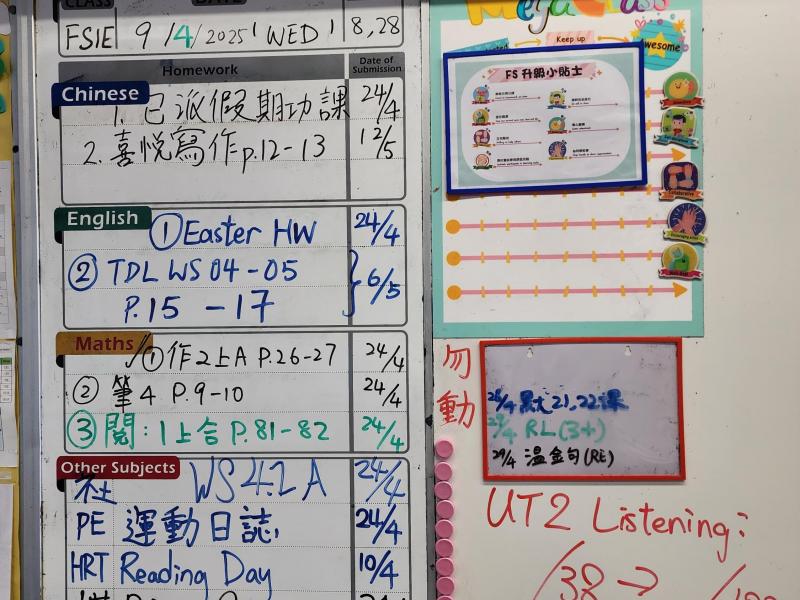 CLASS
DATE
FSIE 9/4/2025 (WED) 8,28
Homework
Date of Submission
Chinese
1. 已派假期功課 24/4
2. 喜悅寫作 p.12-13 12/5
English
① Easter HW 24/4
② TDL WS 04-05
P.15 - 17
6/5
Maths
① 作2上A P.26-27 24/4
② 筆4 P.9-10 24/4
③ 閱:1上合 P.81-82 24/4
Other Subjects
社 WS 4.2A 24/4
PE 運動日誌 24/4
HRT Reading Day 10/4
Mega Class
Keep up
Awesome
FS 升級小貼士
Collaborative
勿動
28/4 默21,22課
29/4 RL(3+)
29/4 溫金句(RE)
UT2 Listening:
/38 →